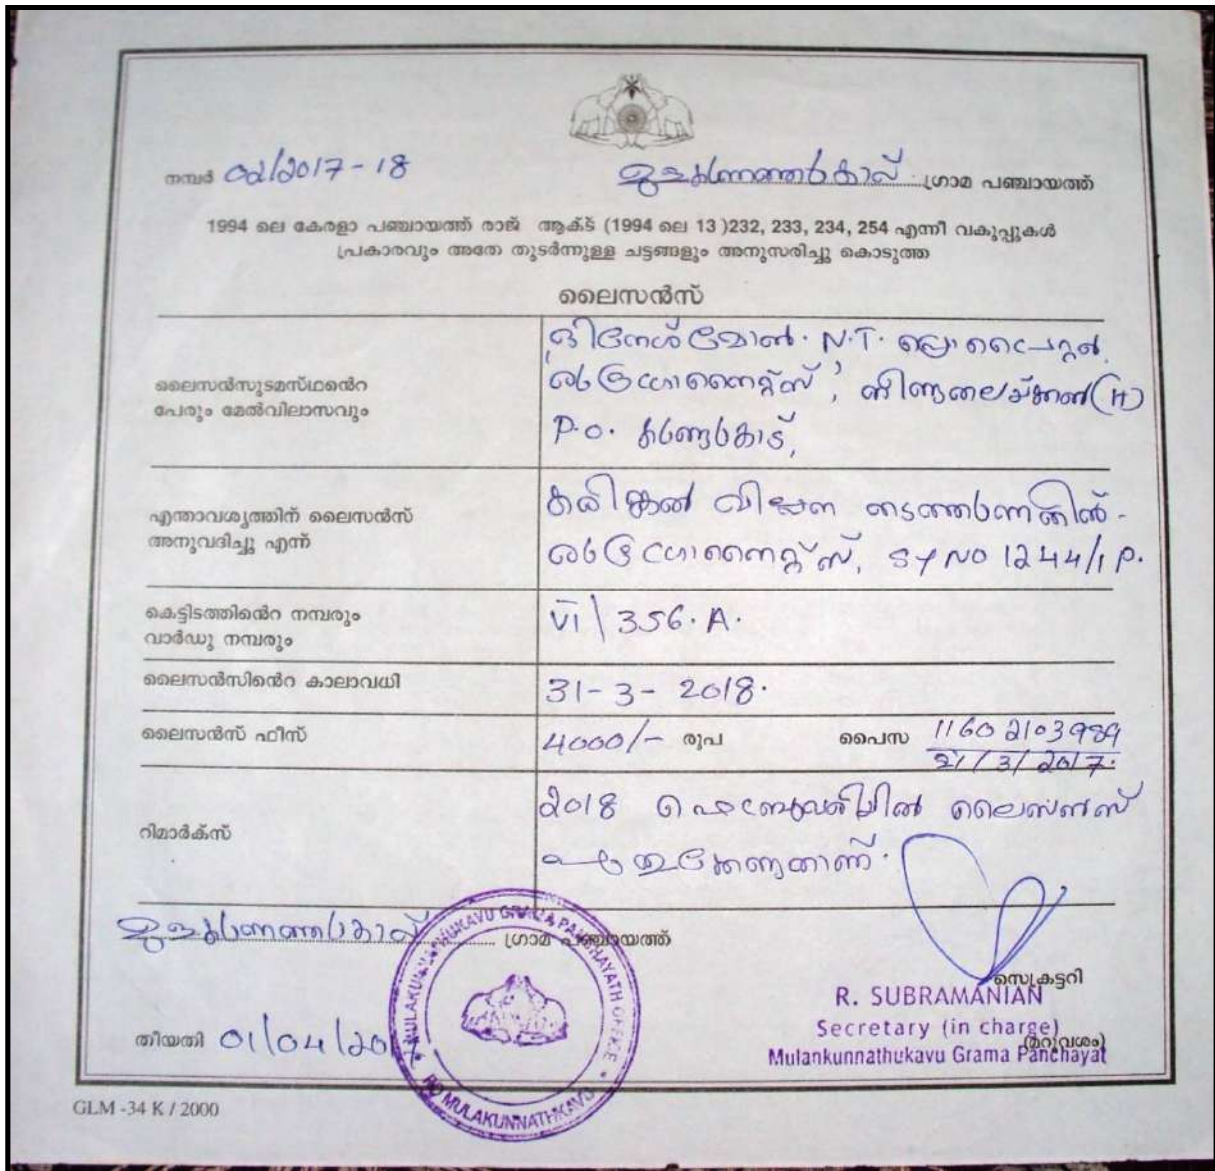 നമ്പർ 02/2017-18 മുളങ്കുന്നത്തുകാവ് ഗ്രാമ പഞ്ചായത്ത്
1994 ലെ കേരളാ പഞ്ചായത്ത് രാജ് ആക്ട് (1994 ലെ 13 )232, 233, 234, 254 എന്നീ വകുപ്പുകൾ
പ്രകാരവും അതേ തുടർന്നുള്ള ചട്ടങ്ങളും അനുസരിച്ചു കൊടുത്ത
ലൈസൻസ്
ലൈസൻസുടമസ്ഥന്റെ
പേരും മേൽവിലാസവും
N.T.
(H)
P.O.
എന്താവശ്യത്തിന് ലൈസൻസ്
അനുവദിച്ചു എന്ന്
കരിങ്കൽ വില്പന നടത്തുന്നതിൽ-
SY NO 1244/1 P.
കെട്ടിടത്തിന്റെ നമ്പരും
വാർഡു നമ്പരും
VI \ 356. A.
ലൈസൻസിന്റെ കാലാവധി
31-3-2018.
ലൈസൻസ് ഫീസ്
4000/- രൂപ പൈസ 1160 2103989
21/3/2017.
റിമാർക്സ്
2018 ഫെബ്രുവരിയിൽ ലൈസൻസ്
പുതുക്കേണ്ടതാണ്.
മുളങ്കുന്നത്തുകാവ് ഗ്രാമ പഞ്ചായത്ത്
MULAKUNNATHUKAVU GRAMA PANCHAYATH OFFICE
PO MULAKUNNATHKAVU
സെക്രട്ടറി
R. SUBRAMANIAN
Secretary (in charge)
(മറുവശം)
Mulankunnathukavu Grama Panchayat
തീയതി 01/04/2017
GLM -34 K / 2000